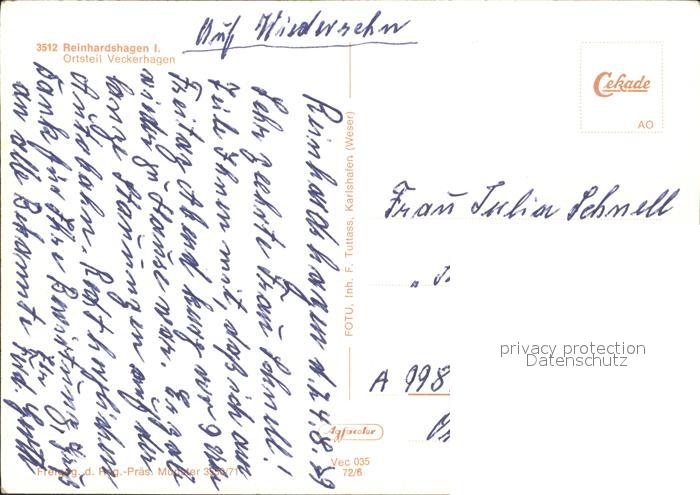 Auf Wiedersehn
3512 Reinhardshagen I.
Ortsteil Veckerhagen
Reinhardshagen d. 24.8.79
Sehr geehrte Frau Schnell!
Teile Ihnen mit, daß ich am
Freitag Abend kurz vor
wieder zu Hause war. Es gab
lange Stauungen auf der
Autobahn. Recht herzlichen
Dank für Ihre Bewirtung,
an alle Bekannte und
FOTU, Inh. F. Tuttass, Karlshafen (Weser)
Cekade
AO
Frau Julia Schnell
privacy protection
Datenschutz
A 998
Agfacolor
Vec 035
72/6
Freigeg. d. Reg.-Präs. Münster